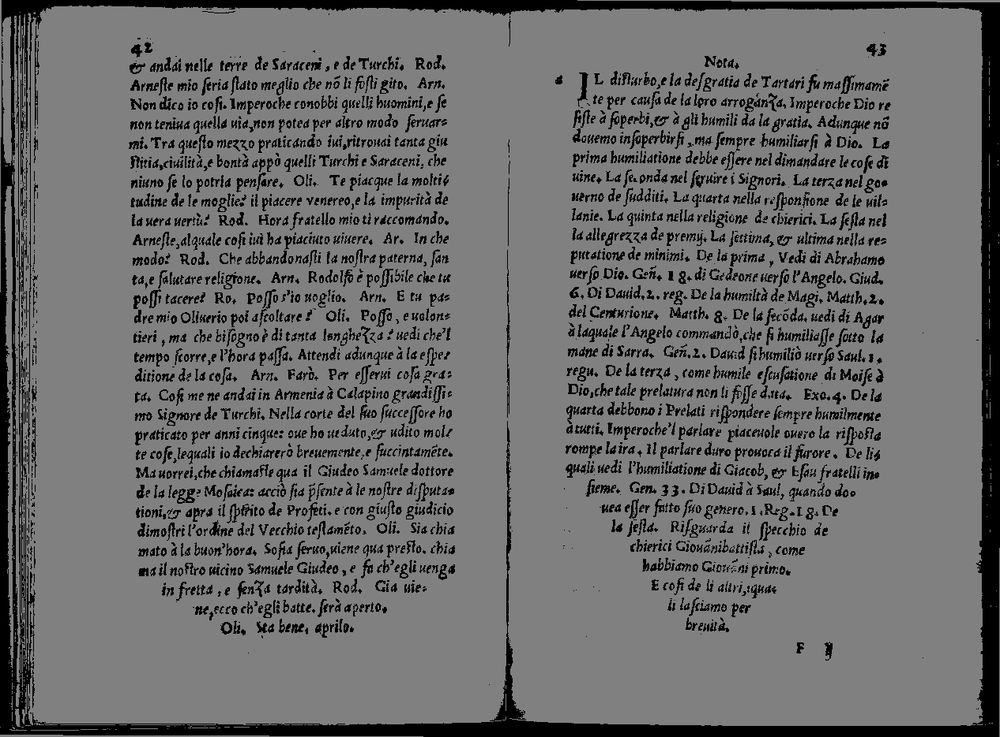 42
& andai nelle terre de Saraceni, e de Turchi. Rod.
Arneste mio seria stato meglio che nõ li fosti gito. Arn.
Non dico io cosi. Imperoche conobbi quelli huomini, e se
non teniua quella uia, non potea per altro modo seruar=
mi. Tra questo mezzo praticando iui, ritrouai tanta giu
stitia, ciuilità, e bontà appò quelli Turchi e Saraceni, che
niuno se lo potria pensare. Oli. Te piacque la molti=
tudine de le moglie? il piacere venereo, e la impurità de
la uera uertù? Rod. Hora fratello mio ti raccomando.
Arneste, alquale cosi iui ha piaciuto uiuere. Ar. In che
modo? Rod. Che abbandonasti la nostra paterna, san
ta, e salutare religione. Arn. Rodolfo è possibile che tu
possi tacere? Ro. Posso s'io uoglio. Arn. E tu pa=
dre mio Oliuerio poi ascoltare? Oli. Posso, e uolon=
tieri, ma che bisogno è di tanta lenghezza? uedi che'l
tempo scorre, e l'hora passa. Attendi adunque à la espe=
ditione de la cosa. Arn. Farò. Per esserui cosa gra=
ta. Cosi me ne andai in Armenia à Calapino grandissi=
mo Signore de Turchi. Nella corte del suo successore ho
praticato per anni cinque: oue ho ueduto, & udito mol=
te cose, lequali io dechiarerò breuemente, e succintamẽte.
Ma uorrei, che chiamaste qua il Giudeo Samuele dottore
de la legge Mosaica: acciò sia p̃sente à le nostre disputa=
tioni, & apra il spirito de Profeti. e con giusto giudicio
dimostri l'ordine del Vecchio testamẽto. Oli. Sia chia
mato à la buon'hora. Sofia seruo, uiene qua presto. chia
ma il nostro uicino Samuele Giudeo, e fa ch'egli uenga
in fretta, e senza tardità. Rod. Gia uie=
ne, ecco ch'egli batte. serà aperto.
Oli. Sta bene, aprilo.
43
Nota.
IL disturbo, e la desgratia de Tartari fu massimamẽ
te per causa de la loro arroganza. Imperoche Dio re
siste à soperbi, & à gli humili da la gratia. Adunque nõ
douemo insoperbirsi, ma sempre humiliarsi à Dio. La
prima humiliatione debbe essere nel dimandare le cose di
uine. La seconda nel seruire i Signori. La terza nel go=
uerno de sudditi. La quarta nella responsione de le uil=
lanie. La quinta nella religione de chierici. La sesta nel
la allegrezza de premij. La settima, & ultima nella re=
putatione de minimi. De la prima, Vedi di Abrahamo
uerso Dio. Geñ. 18. di Gedeone uerso l'Angelo. Giud.
6. Di Dauid. 2. reg. De la humiltà de Magi. Matth. 2.
del Centurione. Matth. 8. De la secõda. uedi di Agar
à laquale l'Angelo commandò, che si humiliasse sotto la
mane di Sarra. Geñ. 2. Dauid si humiliò uerso Saul. 1.
regu. De la terza, come humile escusatione di Moise à
Dio, che tale prelatura non li fosse data. Exo. 4. De la
quarta debbono i Prelati rispondere sempre humilmente
à tutti. Imperoche'l parlare piaceuole ouero la risposta
rompe la ira. Il parlare duro prouoca il furore. De li=
quali uedi l'humiliatione di Giacob, & Esau fratelli in=
sieme. Gen. 33. Di Dauid à Saul, quando do=
uea esser fatto suo genero. 1. Reg. 18. De
la sesta. Risguarda il specchio de
chierici Giouãnibattista, come
habbiamo Giouãni primo.
E cosi de li altri, qua=
li lasciamo per
breuità.
F ij